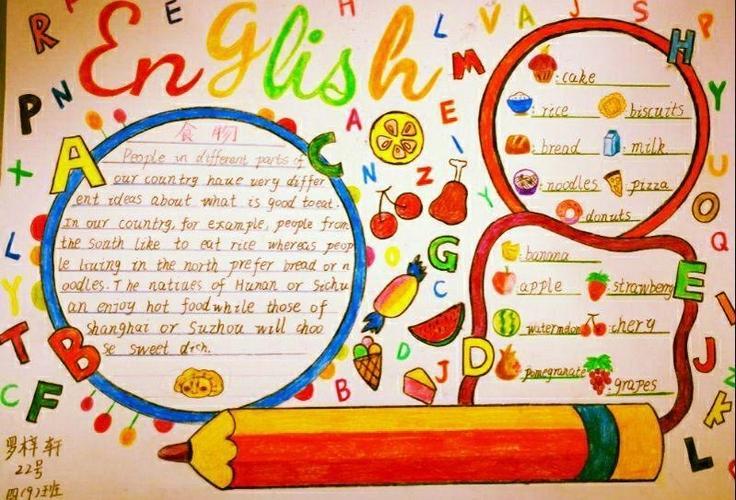 English
食物
People in different parts of
our country have very differ
ent ideas about what is good to eat.
In our country, for example, people from
the south like to eat rice whereas peop
le living in the north prefer bread or n
oodles. The natives of Hunan or Sichu
an enjoy hot food while those of
Shanghai or Suzhou will choo
se sweet dich.
cake
rice
biscuits
bread
milk
noodles
pizza
donuts
banana
apple
strawberry
watermelon
chery
pomegranate
grapes
22号
四(9)班
A
C
B
H
E
D
G